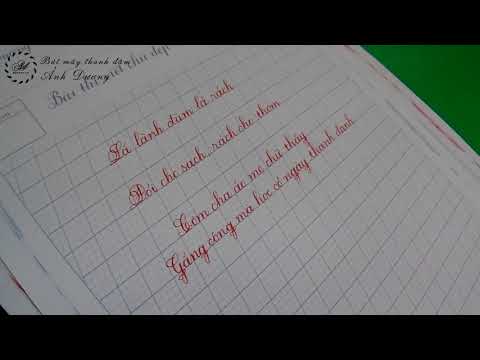 Bút máy thanh đậm
Ánh Dương
Bài thi viết chữ đẹp
Lá lành đùm lá rách
Đói cho sạch, rách cho thơm
Cơm cha áo mẹ chữ thầy
Gắng công mà học có ngày thành danh